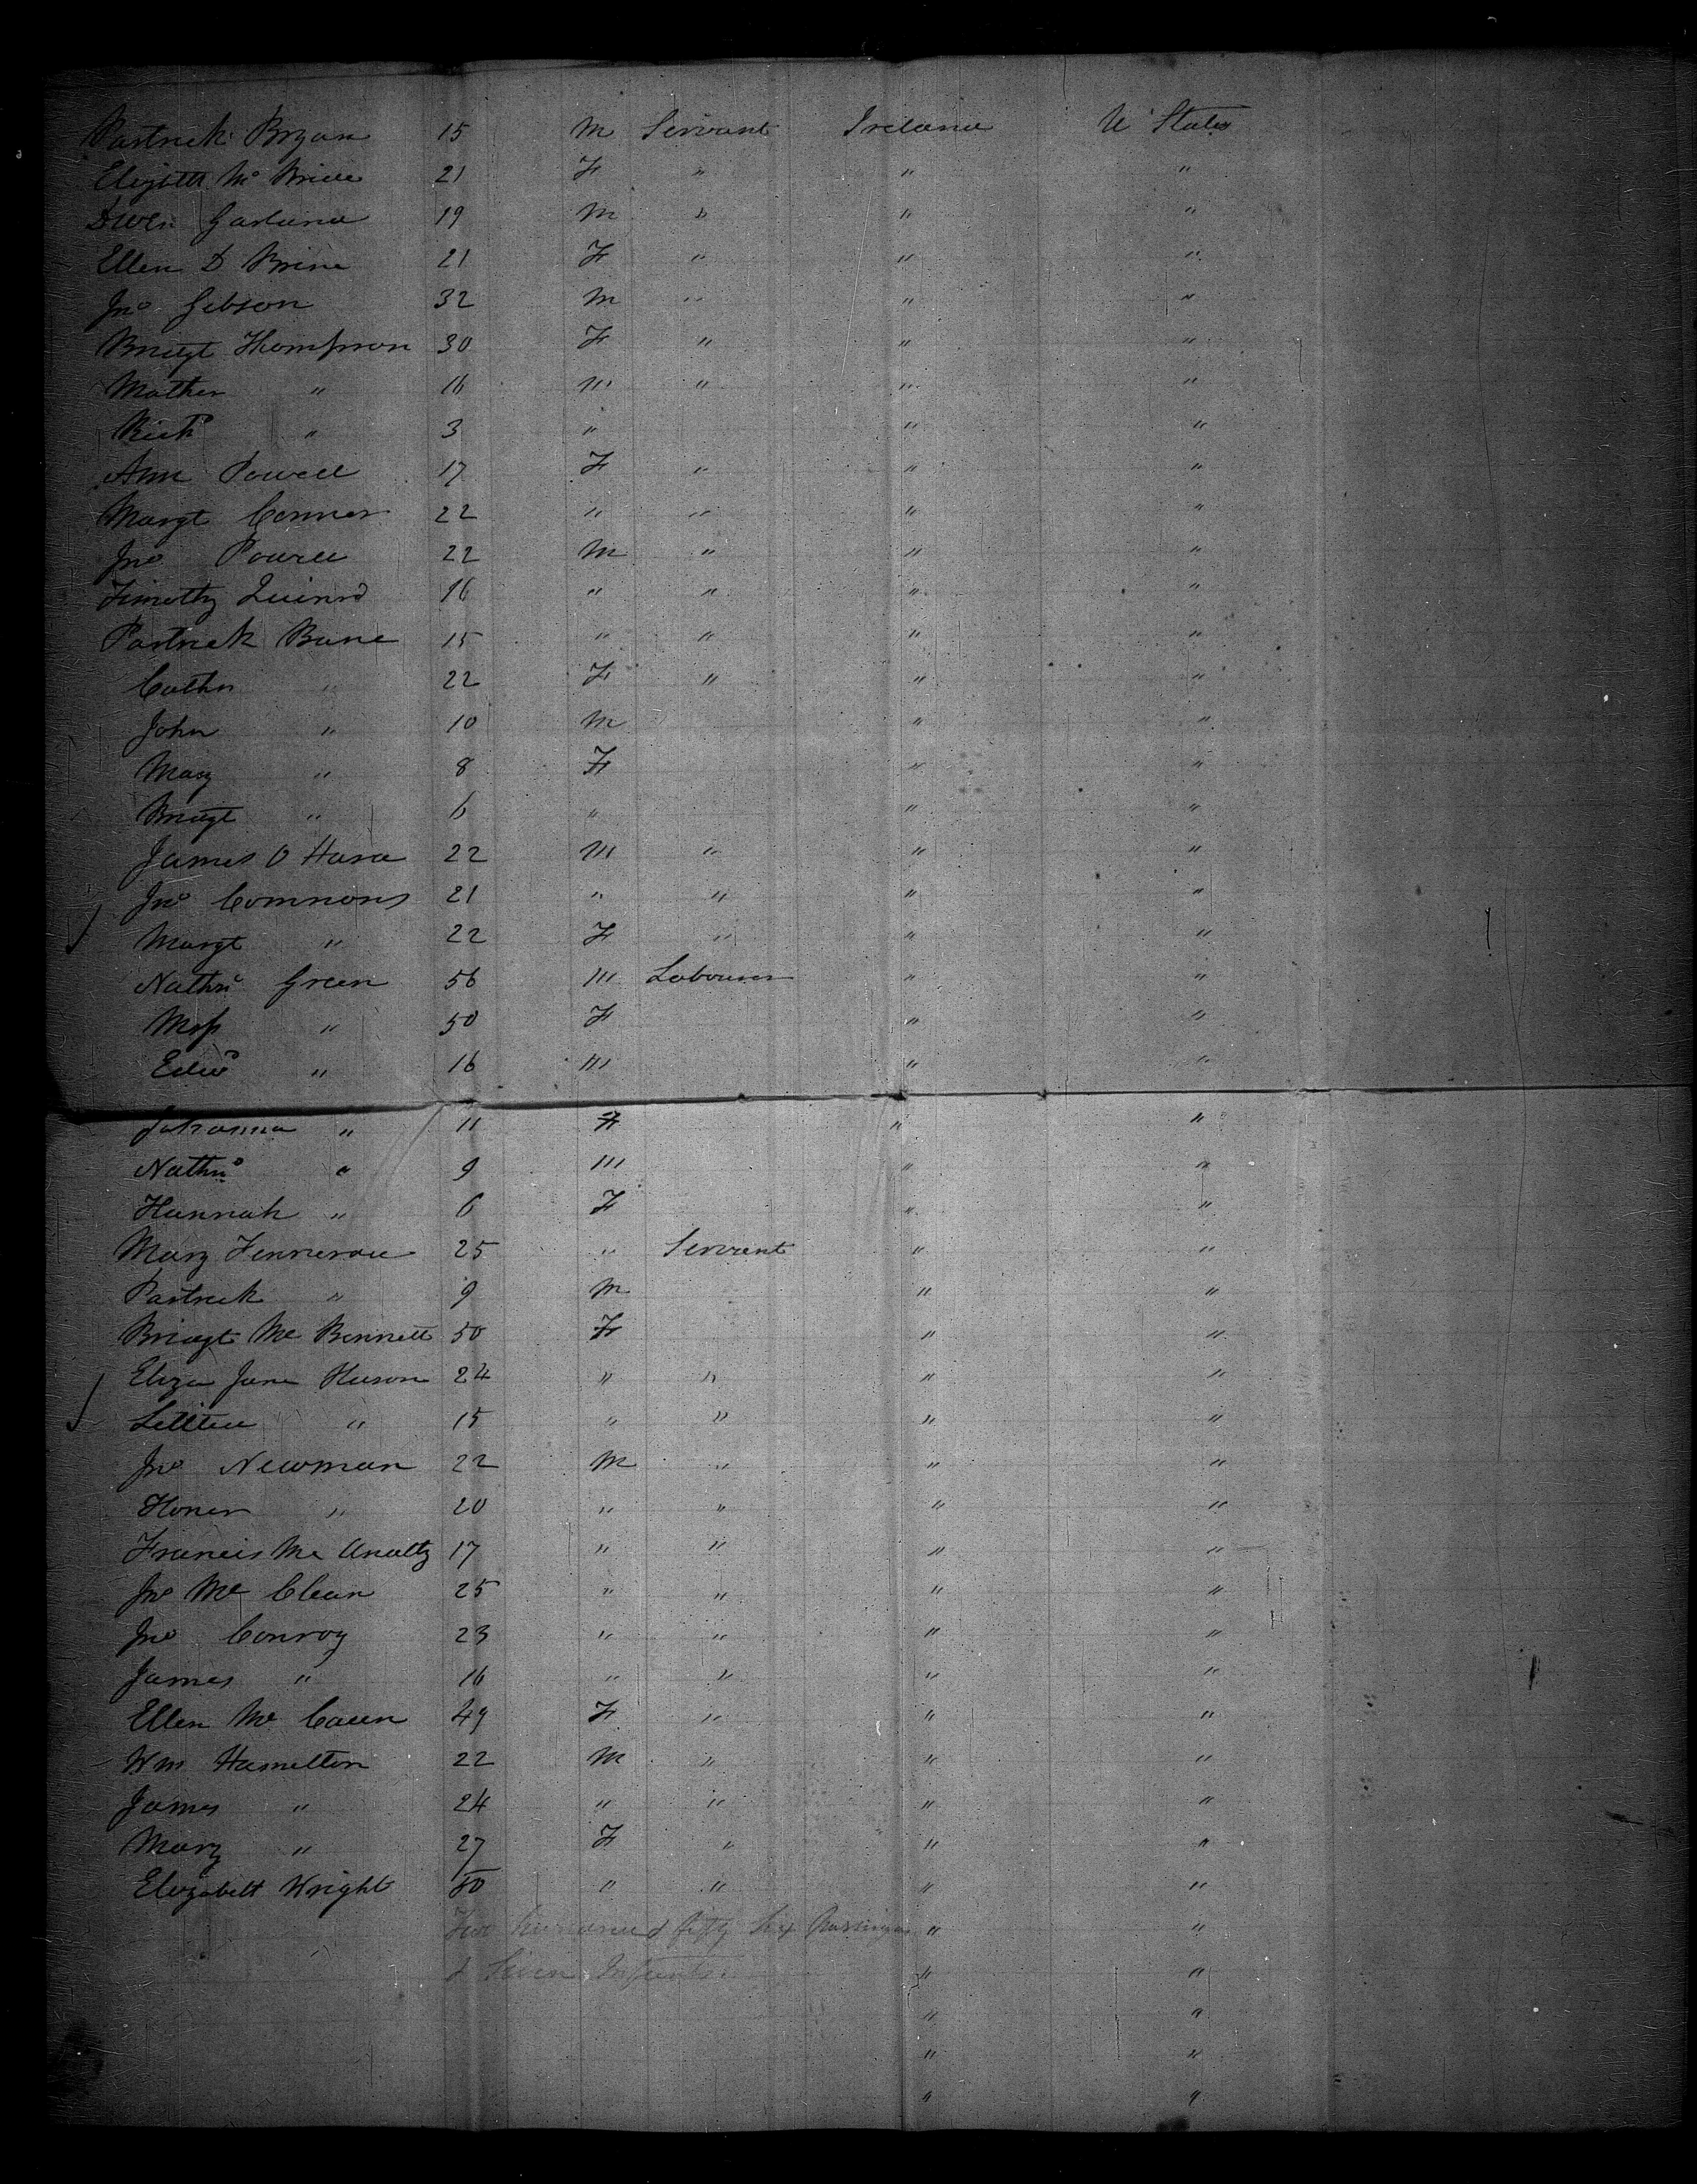 Patrick Bryan 15 M Servant Ireland U States
Elizbth Mc Bride 21 F " " "
Owen Garland 19 M " " "
Ellen O Brine 21 F " " "
Jno Gibson 32 M " " "
Bridgt Thompson 30 F " " "
Mather " 16 M " " "
Richd " 3 " " "
Ann Powell 17 F " " "
Margt Conner 22 " " " "
Jno Powell 22 M " " "
Timothy 16 " " " "
Patrick Bane 15 " " " "
Cathn " 22 F " " "
John " 10 M " "
Mary " 8 F " "
Bridgt " 6 " " "
James O Hara 22 M " " "
Jno Commons 21 " " " "
Margt " 22 F " " "
Nathnl Green 56 M Labourer " "
Mrs " 50 F " "
Edwd " 16 M " "
Johanna " 11 F " "
Nathnl " 9 M " "
Hannah " 6 F " "
Mary 25 " Servant " "
Patrick " 9 M " "
Bridgt Mc Bennett 50 F " "
Eliza Jane Huson 24 " " " "
Letitia " 15 " " " "
Jno Newman 22 M " " "
Honer " 20 " " " "
Francis Mc Anally 17 " " " "
Jno Mc Clean 25 " " " "
Jno Conroy 23 " " " "
James " 16 " " " "
Ellen Mc 49 F " " "
Wm Hamilton 22 M " " "
James " 24 " " " "
Mary " 27 F " " "
Elizabett Wright 30 " " " "
Two hundred fifty Six Passengers " "
& Seven Infants " "
" "
" "
" "